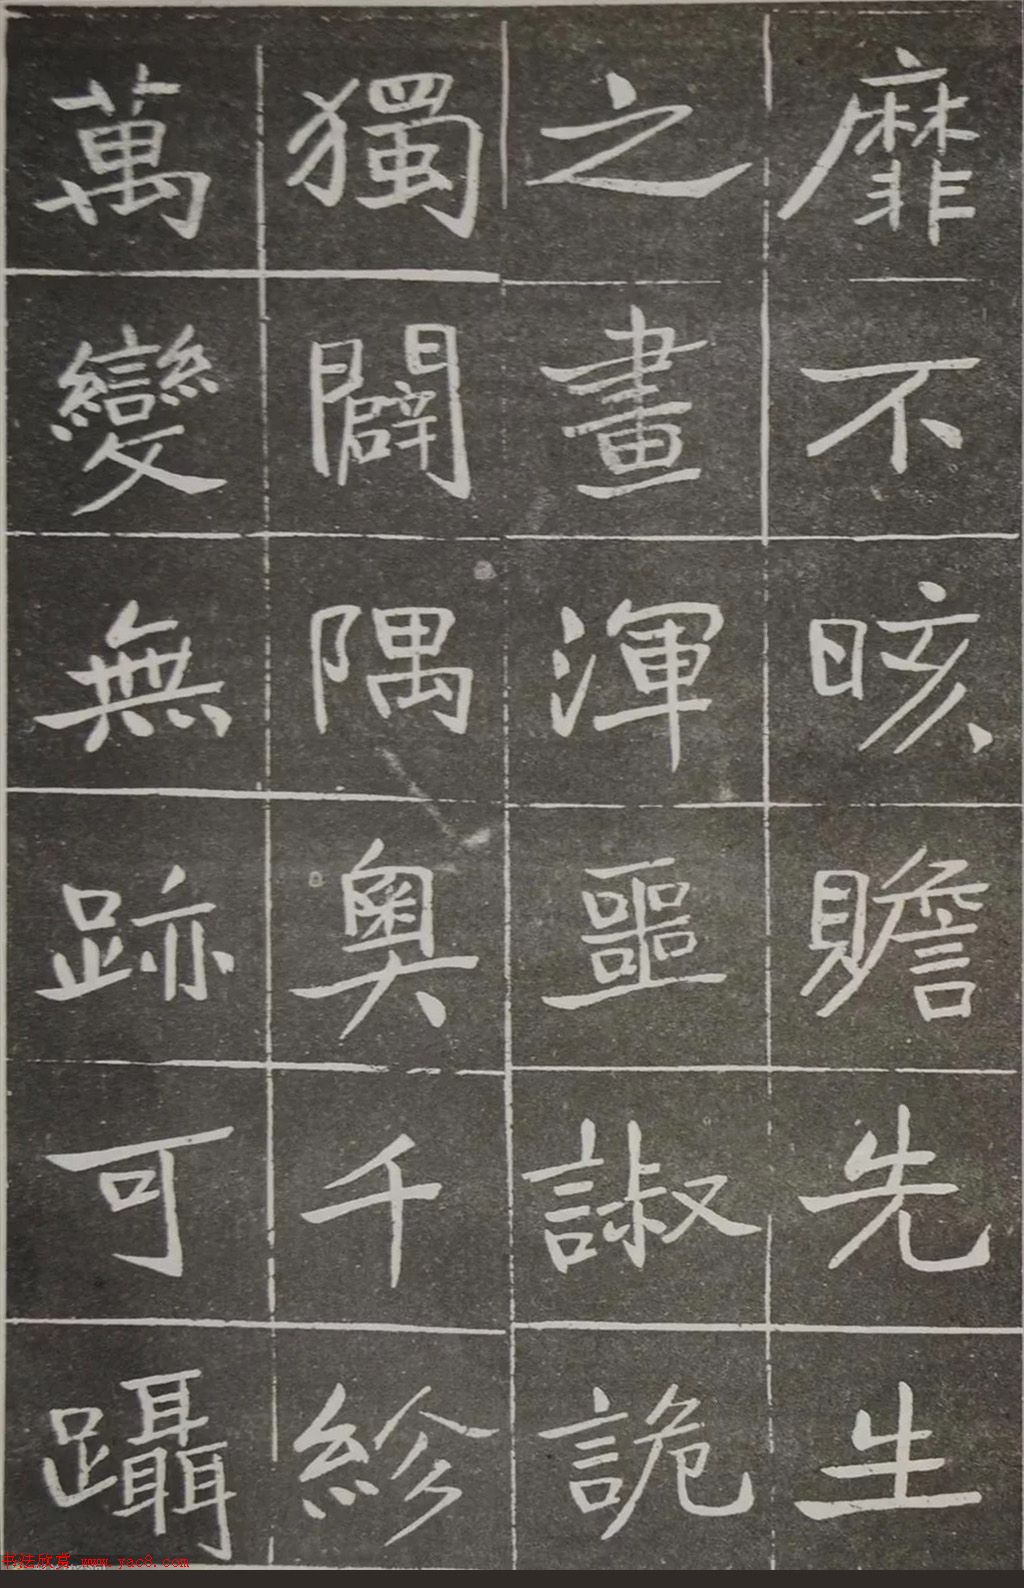 靡不晐贍先生
之畫渾噩諔詭
獨闢隅奧千紾
萬變無跡可躡
书法欣赏 www.yac8.com